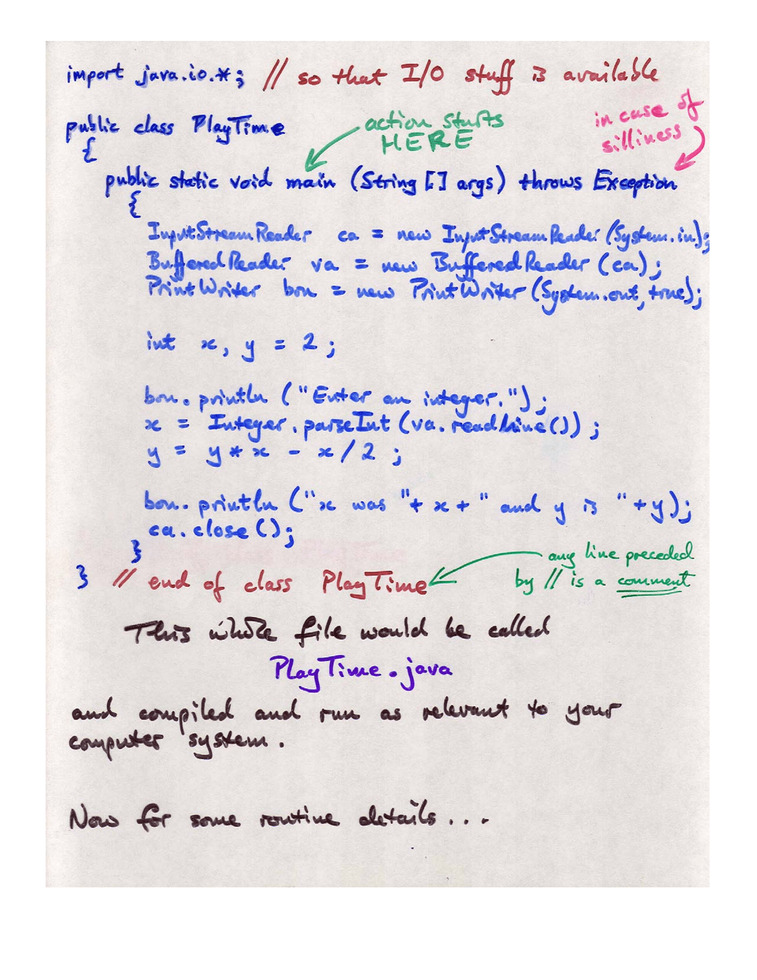 import java.io.*; // so that I/O stuff is available
public class PlayTime
action starts
HERE
in case of
silliness
{
public static void main (String [] args) throws Exception
{
InputStreamReader ca = new InputStreamReader (System.in);
BufferedReader va = new BufferedReader (ca);
PrintWriter bon = new PrintWriter (System.out, true);
int x, y = 2;
bon. println ("Enter an integer.");
x = Integer.parseInt (va.readLine());
y = y * x - x / 2 ;
bon. println ("x was "+ x + " and y is " + y);
ca. close ();
}
} // end of class PlayTime
any line preceded
by // is a comment
This whole file would be called
PlayTime.java
and compiled and run as relevant to your
computer system.
Now for some routine details...